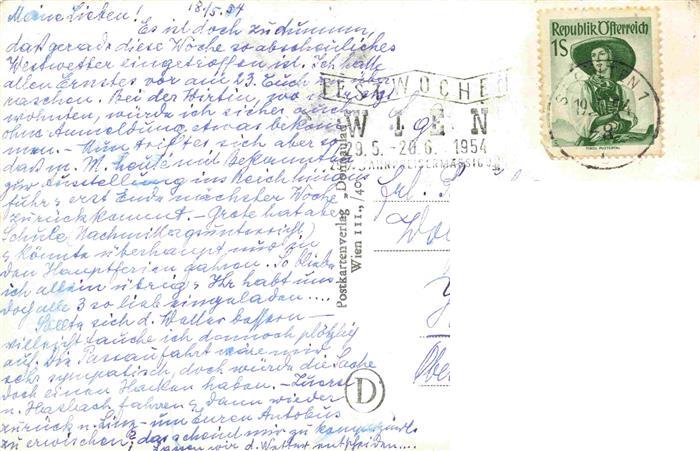 Meine Lieben! 18/5. 54
Es ist doch zu dumm,
daß gerade diese Woche so abscheuliches
Westwetter eingetroffen ist. Ich hatte
allen Ernstes vor am 23. Euch zu über-
raschen. Bei der Wirtin, wo wir
wohnten, würde ich sicher auch
ohne Anmeldung etwas bekom-
men. – Nun trifft es sich aber so
daß m. M. heute mit Bekannten
zur Ausstellung ins Reich
fuhr & erst Ende nächster Woche
zurückkommt. – Grete hat aber
Schule (Nachmittagsunterricht)
& könnte überhaupt nur in
den Hauptferien fahren. So bliebe
ich allein übrig & Ihr habt uns
doch alle 3 so lieb eingeladen....
Sollte sich d. Wetter bessern –
vielleicht tauche ich dennoch plötzlich
auf. Die Passaufahrt wäre mir
sehr sympatisch, doch würde die Sache
doch einen Hacken haben. – Zuerst
n. Haslach fahren & dann wieder
zurück n. Linz – um Euren Autobus
zu erwischen? das scheint mir zu kompliziert.
d. Wetter entscheiden....
Republik Österreich
1S
FESTWOCHEN
WIEN
29. 5. - 20. 6. 1954
Postkartenverlag „Donauland“
Wien III., /40
D